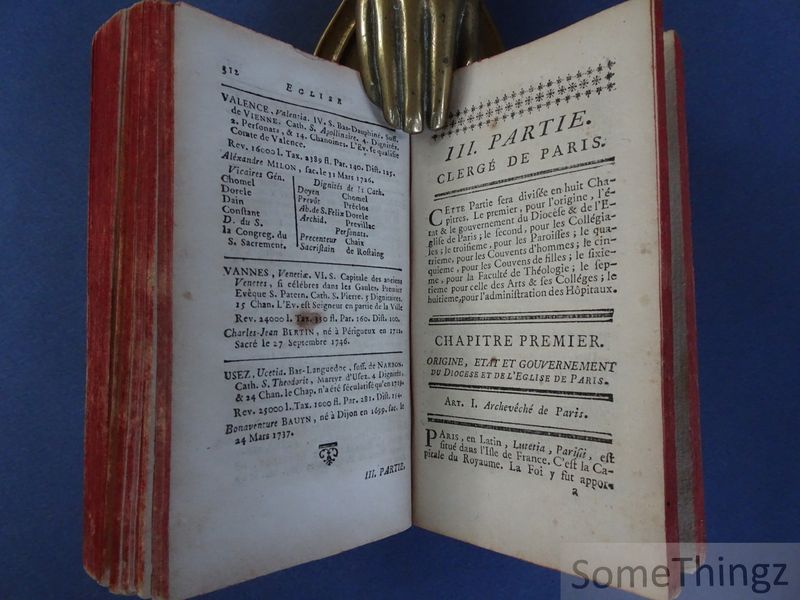 312
EGLISE
VALENCE, Valentia. IV. S. Bas-Dauphiné, Suff.
de VIENNE. Cath. S. Apollinaire. 4. Dignités,
2. Personats, & 14. Chanoines. L'Ev. se qualifie
Comte de Valence.
Rev. 16000 l. Tax. 2389 fl. Par. 140. Dist. 125.
Aléxandre MILON, sac. le 31 Mars 1726.
Vicaires Gén.
Chomel
Dorele
Dain
Constant
D. du S.
la Congreg. du
S. Sacrement.
Dignités de la Cath.
Doyen Chomel
Prevôt Préclos
Ab. de S. Felix Dorele
Archid. Previllac
Personats.
Precenteur Chaix
Sacristain de Rostaing
VANNES, Venetiæ. VI. S. Capitale des anciens
Venetes, si célébres dans les Gaules. Premier
Evêque S. Patern. Cath. S. Pierre. 5 Dignitaires.
15 Chan. L'Ev. est Seigneur en partie de la Ville
Rev. 24000 l. Tax. 350 fl. Par. 160. Dist. 100.
Charles-Jean BERTIN, né à Périgueux en 1712.
Sacré le 27 Septembre 1746.
USEZ, Ucetia. Bas-Languedoc, suff. de NARBON.
Cath. S. Theodorit, Martyr d'Usez. 4 Dignités,
& 24 Chan. le Chap. n'a été sécularisé qu'en 1719.
Rev. 25000 l. Tax. 1000 fl. Par. 281. Dist. 154.
Bonaventure BAUYN, né à Dijon en 1699. sac. le
24 Mars 1737.
III. PARTIE.
III. PARTIE.
CLERGÉ DE PARIS.
CETTE Partie sera divisée en huit Cha-
pitres. Le premier, pour l'origine, l'é-
tat & le gouvernement du Diocèse & de l'E-
glise de Paris; le second, pour les Collégia-
les; le troisieme, pour les Paroisses; le qua-
trieme, pour les Couvents d'hommes; le cin-
quieme, pour les Couvens de filles; le sixie-
me, pour la Faculté de Théologie; le sep-
tieme pour celle des Arts & ses Colléges; le
huitieme, pour l'administration des Hôpitaux.
CHAPITRE PREMIER.
ORIGINE, ETAT ET GOUVERNEMENT
DU DIOCESE ET DE L'EGLISE DE PARIS.
ART. I. Archevêché de Paris.
PARIS, en Latin, Lutetia, Parisii, est
situé dans l'Isle de France. C'est la Ca-
pitale du Royaume. La Foi y fut appor-
a
SomeThingz